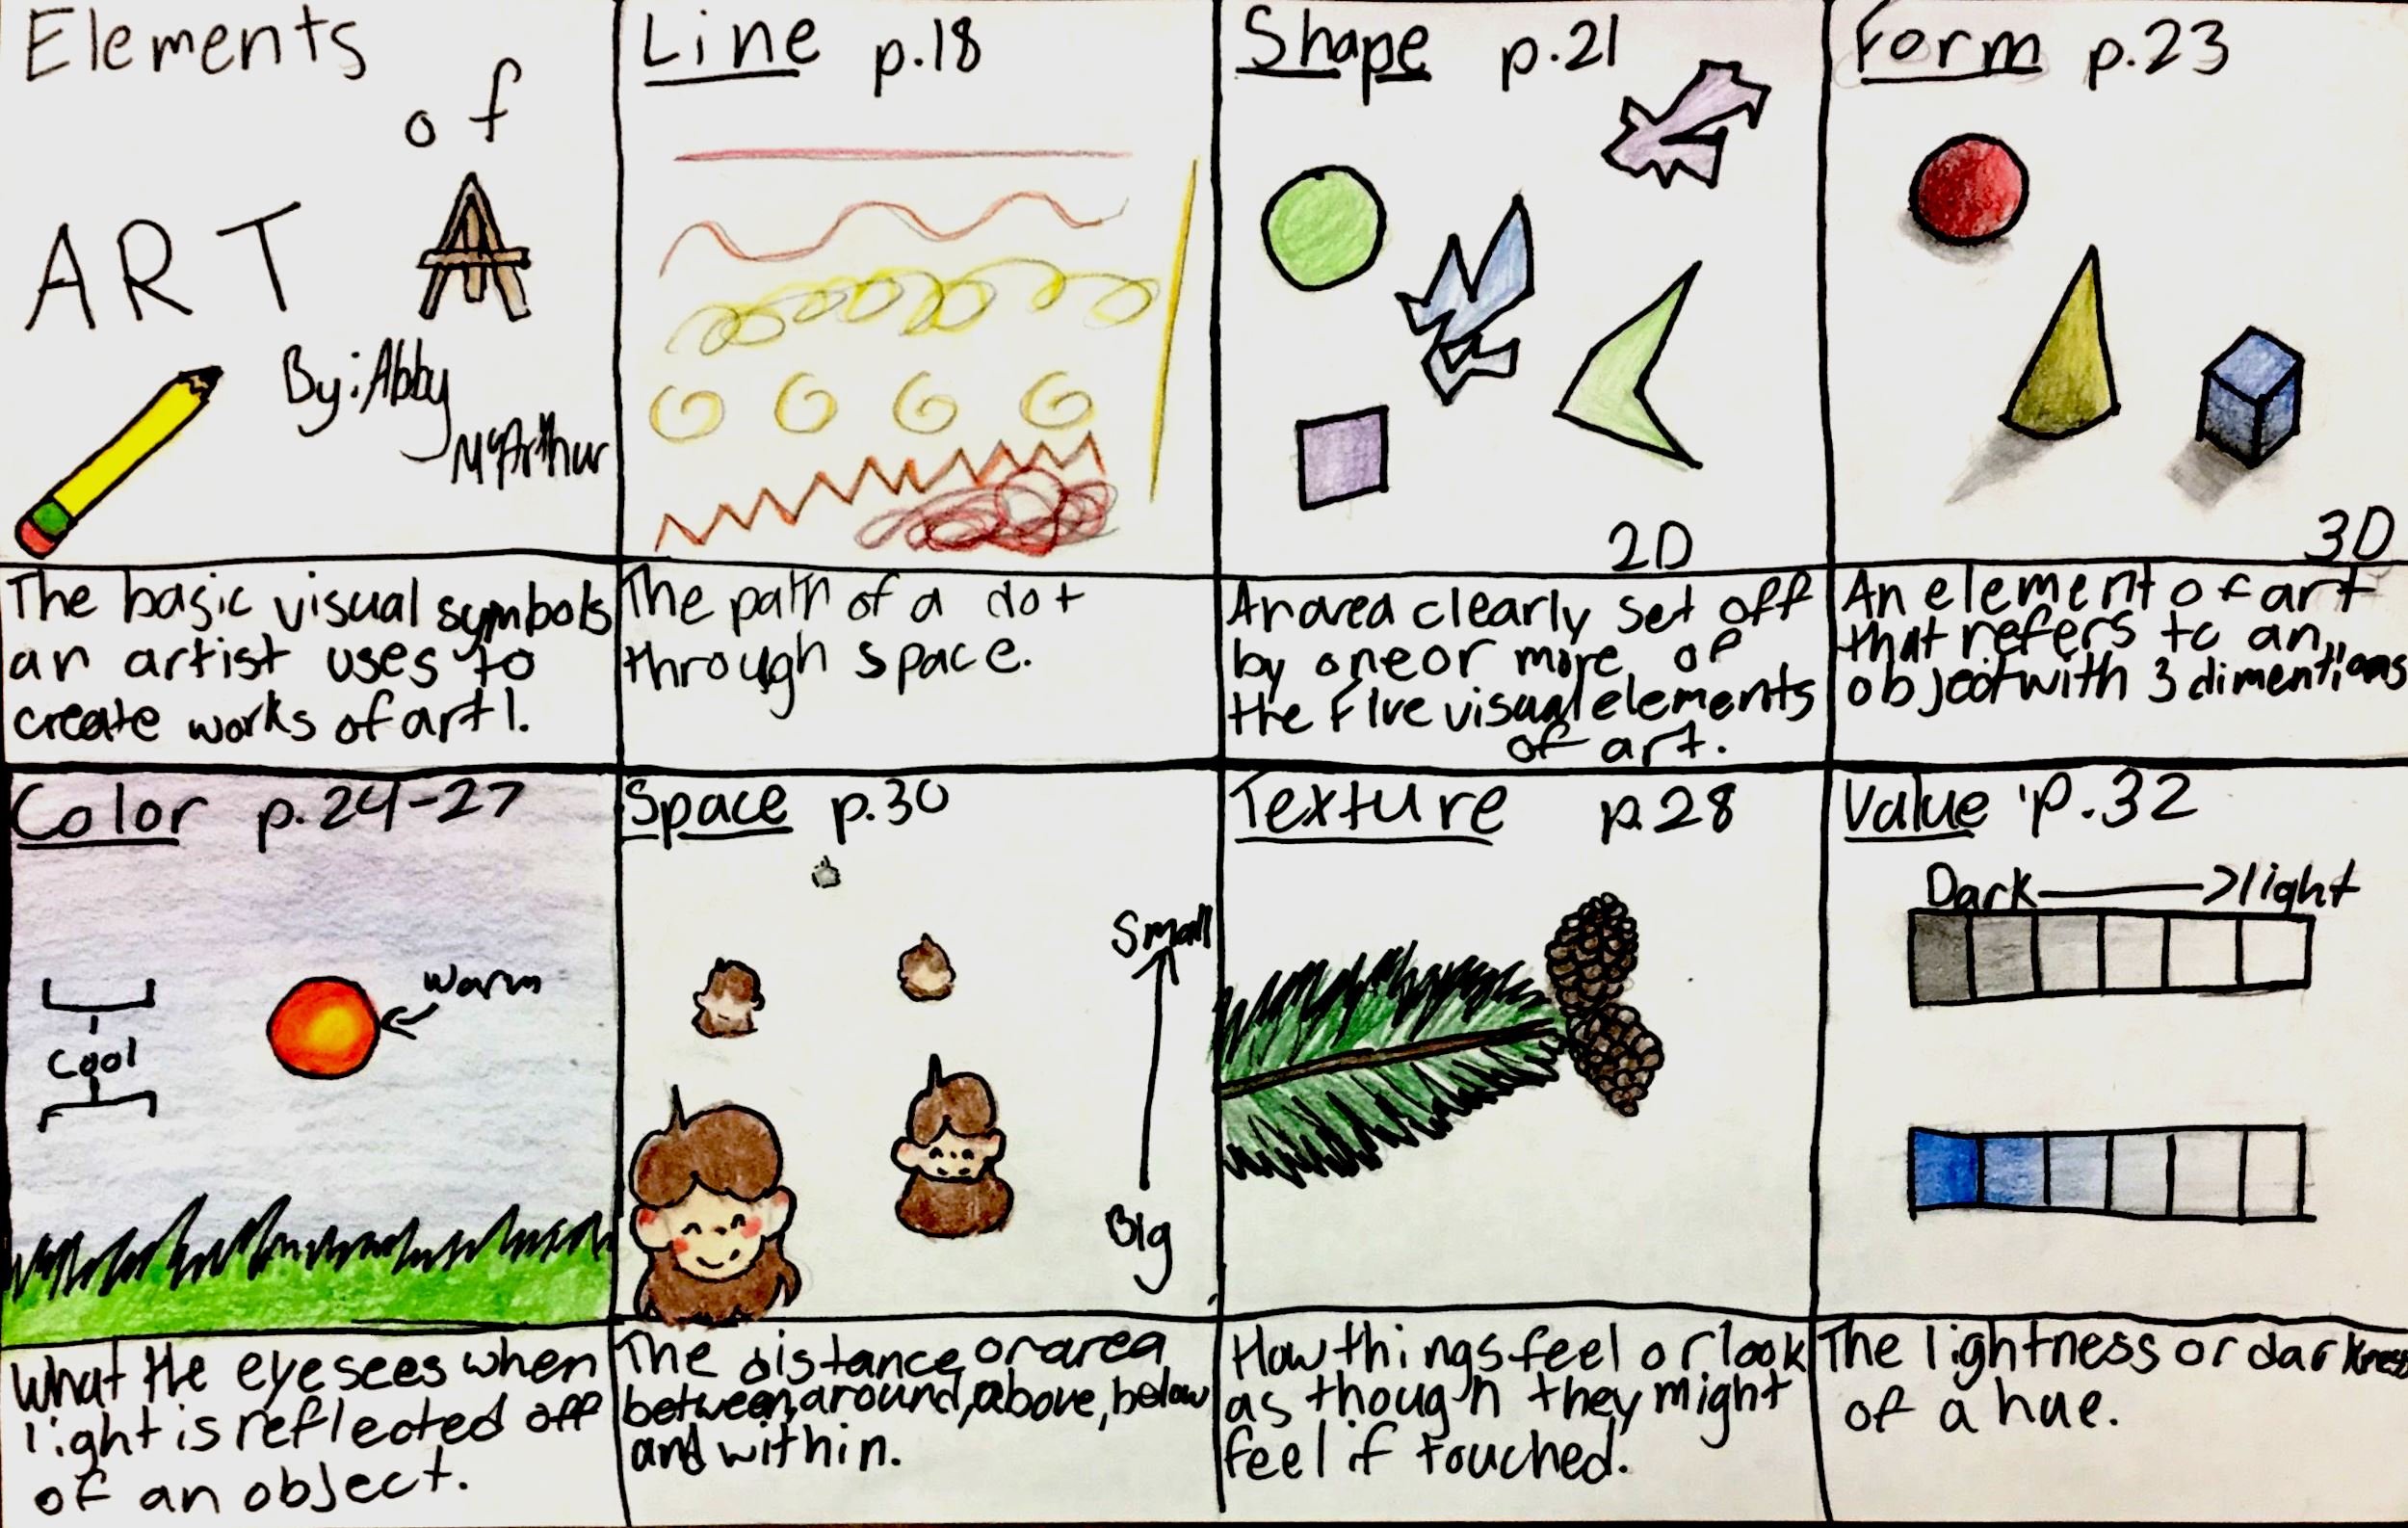 Elements
of
ART
By: Abby
McArthur
The basic visual symbols
an artist uses to
create works of art1.
Line p.18
The path of a dot
through space.
Shape p.21
2D
An area clearly set off
by one or more of
the five visual elements
of art.
Form p.23
3D
An element of art
that refers to an
object with 3 dimentions
Color p.24-27
Warm
Cool
What the eye sees when
light is reflected off
of an object.
Space p.30
Small
Big
The distance or area
between, around, above, below
and within.
Texture p.28
How things feel or look
as though they might
feel if touched.
Value p.32
Dark → light
The lightness or darkness
of a hue.